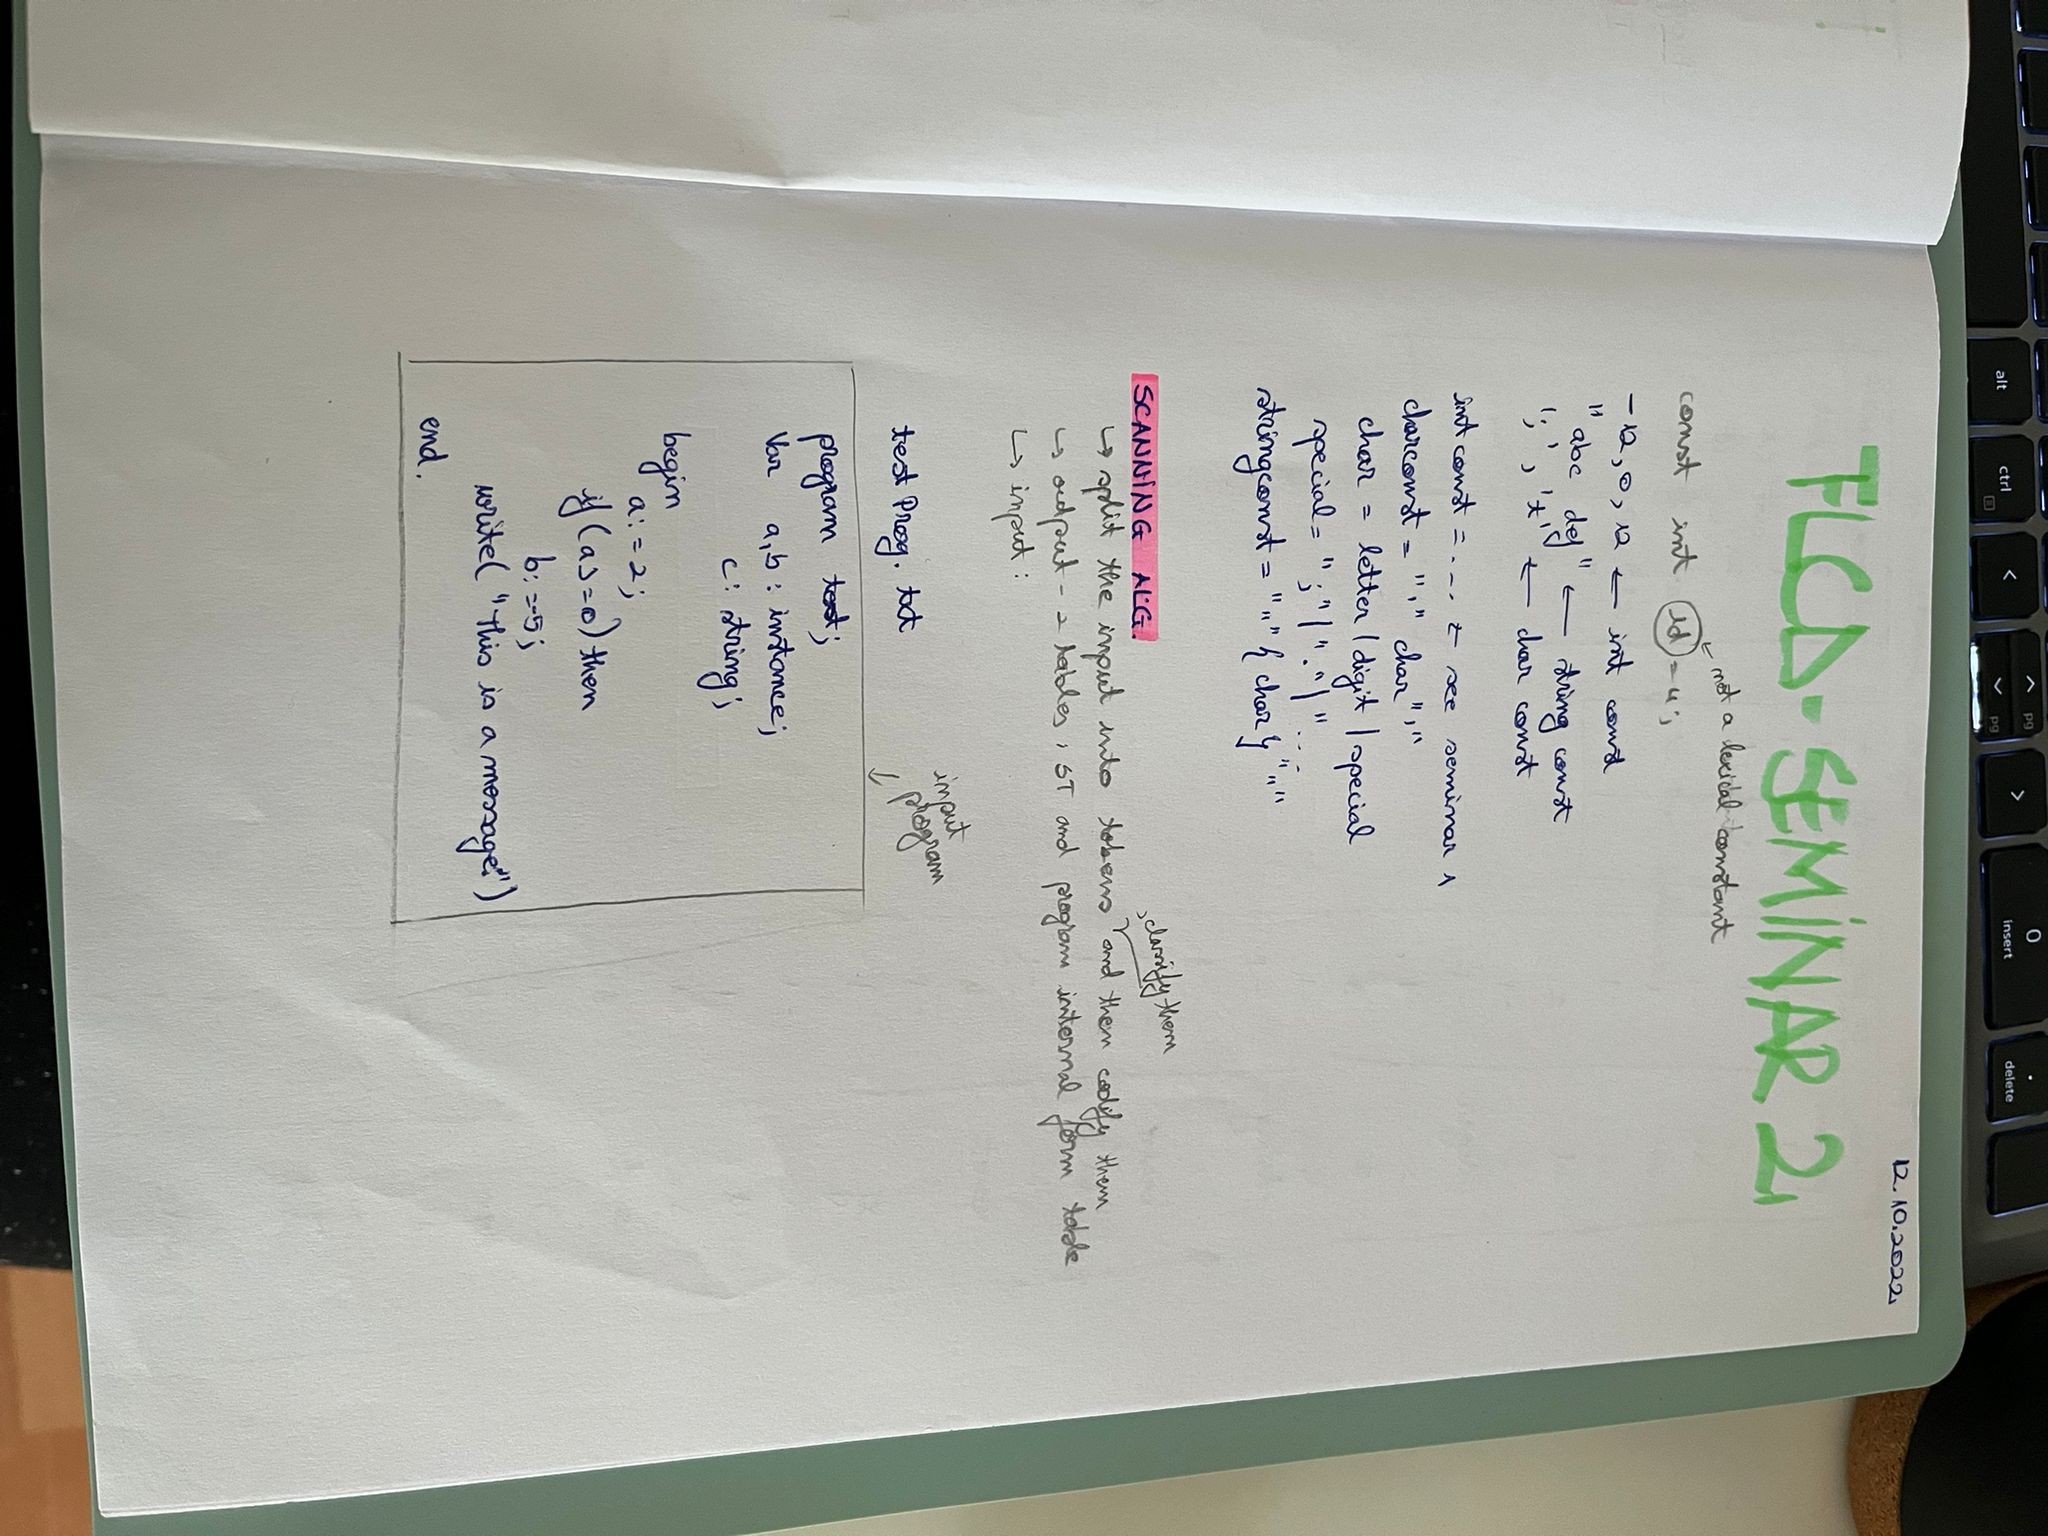 alt
ctrl
<
pg
pg
>
0
insert
.
delete
12.10.2022.
FLCD - SEMINAR 2.
not a lexical constant
const int id = 4;
-12, 0, 12 ← int const
"abc def" ← string const
';', 't' ← char const
intconst = .... ← see seminar 1
charconst = "'" char "'"
char = letter | digit | special
special = ";" | "." | "...
stringconst = """ { char } """
SCANNING ALG.
, classify them
↳ split the input into tokens and then codify them
↳ output - 2 tables, ST and program internal form table
↳ input:
input
program
testProg.txt
program test;
Var a,b: instance;
c: string;
begin
a:=2;
if (a>=0) then
b:=-5;
write("This is a message.")
end.